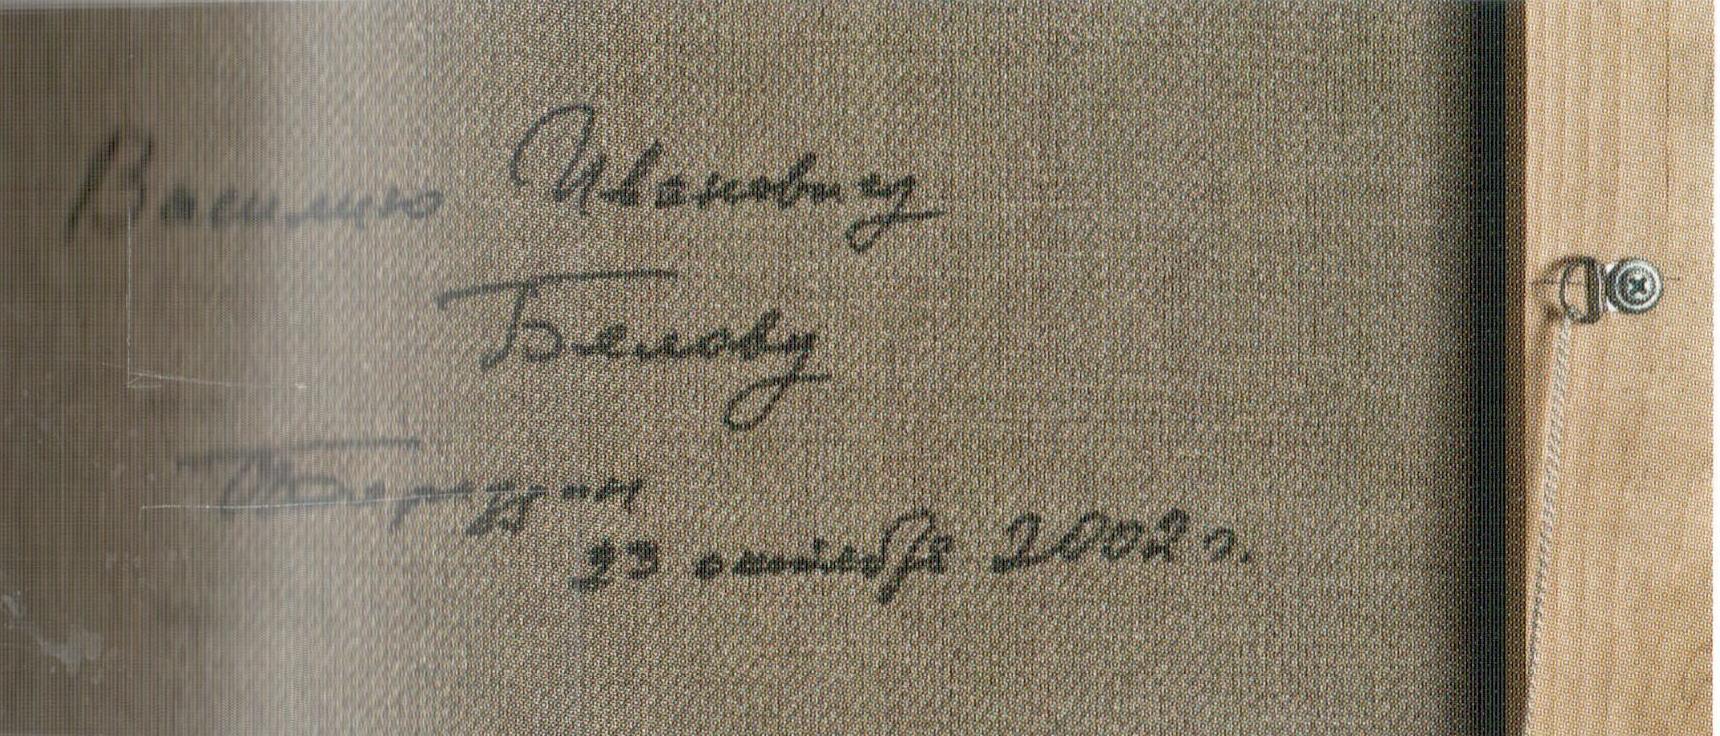 Василию Ивановичу
Белову
23 октября 2002 г.